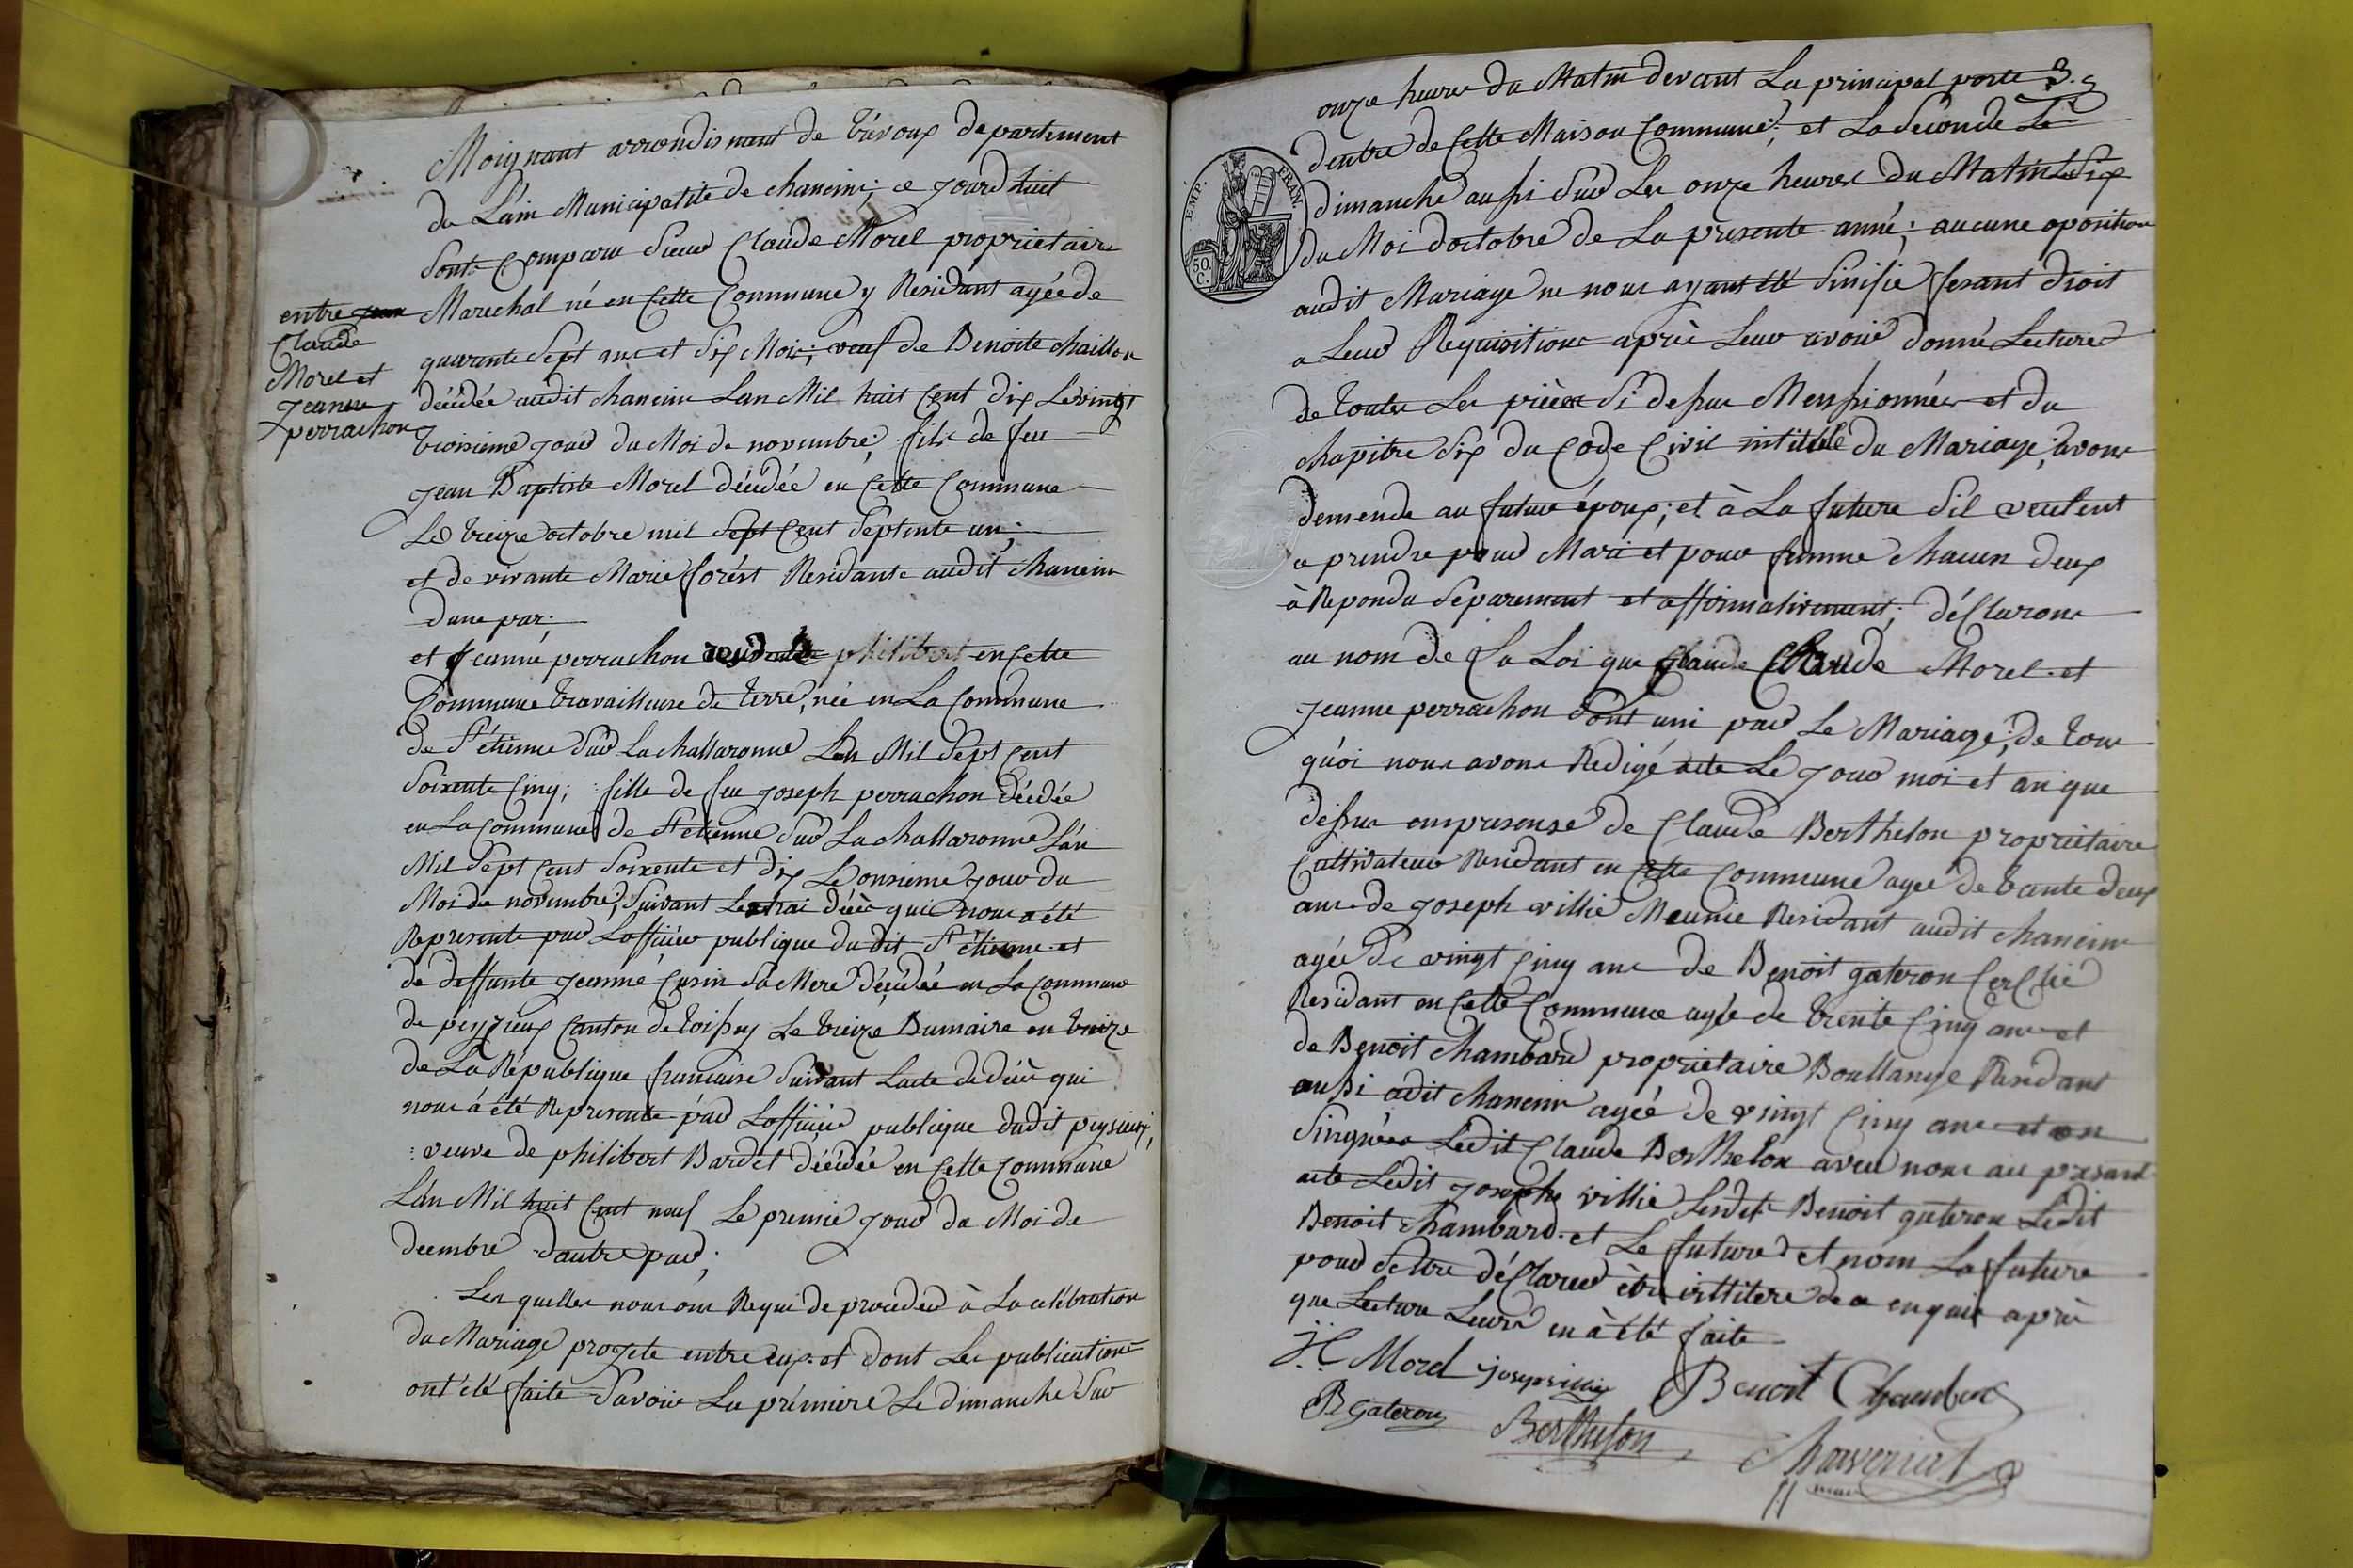 Moignant arrondisment de trévoux departement
de Lain Municipatité de chanein; ce jourdhuit
Sonts Comparu Sieur Claude Morel propriétaire
Marechal né en Cette Commune y Residant agée de
quarante Sept ans et Six Mois; veuf de Benoite chaillon
décédée audit chanein Lan Mil huit Cent dix Le vingt
troisieme jour du Moi de novembre; fils de feu
jean Baptiste Morel décédée en Cette Commune
Le treize octobre mil Sept Cent Septente un;
et de vivante Marie forést Residante audit chanein
dune par;
entre jean
Claude
Morel et
jeanne
perrachon
et jeanne perrachon philibert en Cette
Commune travailleuse de terre, née en La Commune
de St étienne Sur La challaronne Lan Mil Sept Cent
Soixente Cinq; fille de feu joseph perrachon décédée
en La Commune de St étienne Sur La challaronne Lán
Mil Sept Cent Soixente et dix Le onsieme jour du
Moi de novembre; Suivant Lextrai décè qui nous a été
Represente par Lofficier publique du dit St étienne et
de deffunte jeanne Cusin Sa Mere décédée en La Commune
de peyzieux Canton de toissey Le treize Bumaire en treize
de La République francaise Suivant Lacte de décè qui
nous á été Represente pár Lofficier publique dudit peysieux,
veuve de philibert Bardet décédée en Cette Commune
Lán Mil huit Cent neuf Le premié jour du Moi de
decembre dautre par;
Les quelles nous ons Requi de proceder à La celébration
du Mariage projete entre eux et dont Les publications
ont été faite Savoir La prémiere Le dimanche Sur
onze heures du Matin devant La principal porte
EMP. FRAN.
50. C.
dentre de Cette Maison Commune; et La Seconde Le
dimanche aussi Sur Les onze heures du Matin Le Six
du Moi doctobre de La presente anné; aucune oposition
audit Mariage ne nous ayant été Sinifie fesant droit
a Leur Requisitions aprè Leur avoir donné Lecture
de toutes Les pièce Si dessus Menssionnées et du
chapitre Six du Code Civil intitulé du Mariage; avons
demende au future époux; et à La future Sil veulent
a prendre pour Mari et pour femme chacun deux
à Repondu Séparement et affirmativement; déClarons
au nom de La Loi que Claude Claude Morel et
jeanne perrachon Sont uni par Le Mariage; de tous
quói nous avons Redigé acte Le jour moi et an que
dessus empresense de Claude Berthelon propriétaire
Cultivateur Residant en Cette Commune agée de trante deux
ans de joseph villié Meunié Residant audit chanein
agée de vingt Cinq ans de Benoit gateron CerClié
Residant en Cette Commune agée de trente Cinq ans et
de Benoit chambard propriétaire Boullange Residant
aussi adit chanein agée de vingt Cinq ans et on
Singnées Ledit Claude Berthelon avec nous au présant
acte Ledit joseph villie Ledit Benoit gateron Ledit
Benoit Chambard et Le future et nom La future
pour Settre déClarer ètre de a enquis aprè
que Lecture Leurs en à été faite
J: C Morel joseph villie Benoit Chambard
B gateron Berthelon